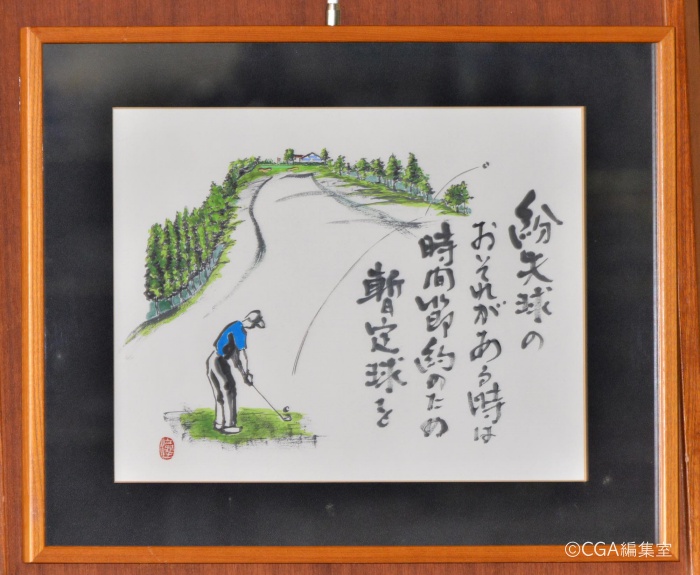 紛失球の
おそれがある時は
時間節約のため
暫定球を
©CGA編集室